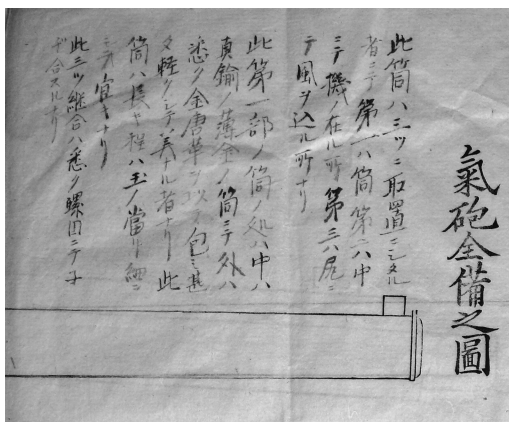 氣砲全備之圖
此筒ハ三ツニ取置ニシタル
者ニテ第一ハ筒第二ハ中
ニテ機在ル所第三ハ尾ニ
テ風ヲ込ル所ナリ
此第一部ノ筒ノ処ハ中ハ
真鍮ノ薄金ノ筒ニテ外ハ
悉ク金唐革ヲ以テ包ミ甚
タ軽クシテ美ナル者ナリ此
筒ハ長キ程ハ玉ノ當リ細ニ
シテ宜キナリ
此三ツ継合ハ悉ク螺旋ニテ子
ヂ合スルナリ